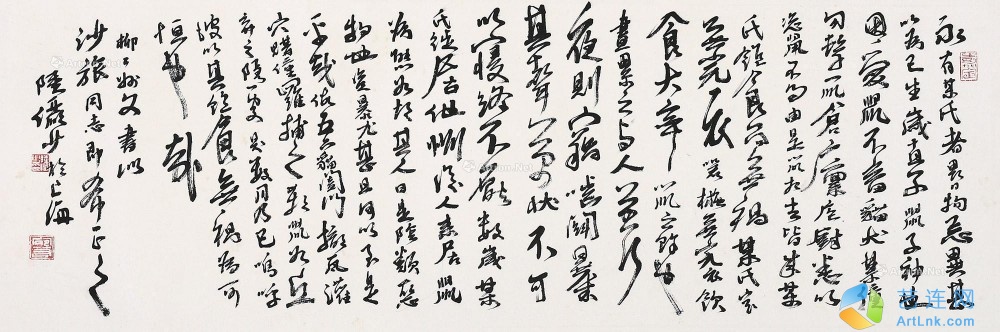 永有某氏者畏日拘忌異甚
以為己生歲直子鼠子神也
因愛鼠不畜貓犬禁僮
勿擊鼠倉廩庖厨悉以
恣鼠不問由是鼠相告皆来某
氏飽食而無禍某氏室
無完器椸無完衣飲
食大率鼠之餘也
晝累累與人兼行
夜則竊嚙鬭暴
其聲萬狀不可
以寢終不厭數歲某
氏徙居他州後人来居鼠
為態如故其人曰是陰類惡
物也盜暴尤甚且何以至是
乎哉假五六貓闔門撤瓦灌
穴購僮羅捕之殺鼠如丘
棄之隱處臭數月乃已嗚呼
彼以其飽食無禍為可
恒也哉
柳柳州文書以
沙旅同志即希正之
陸儼少於上海
艺连网
ArtLnk.com